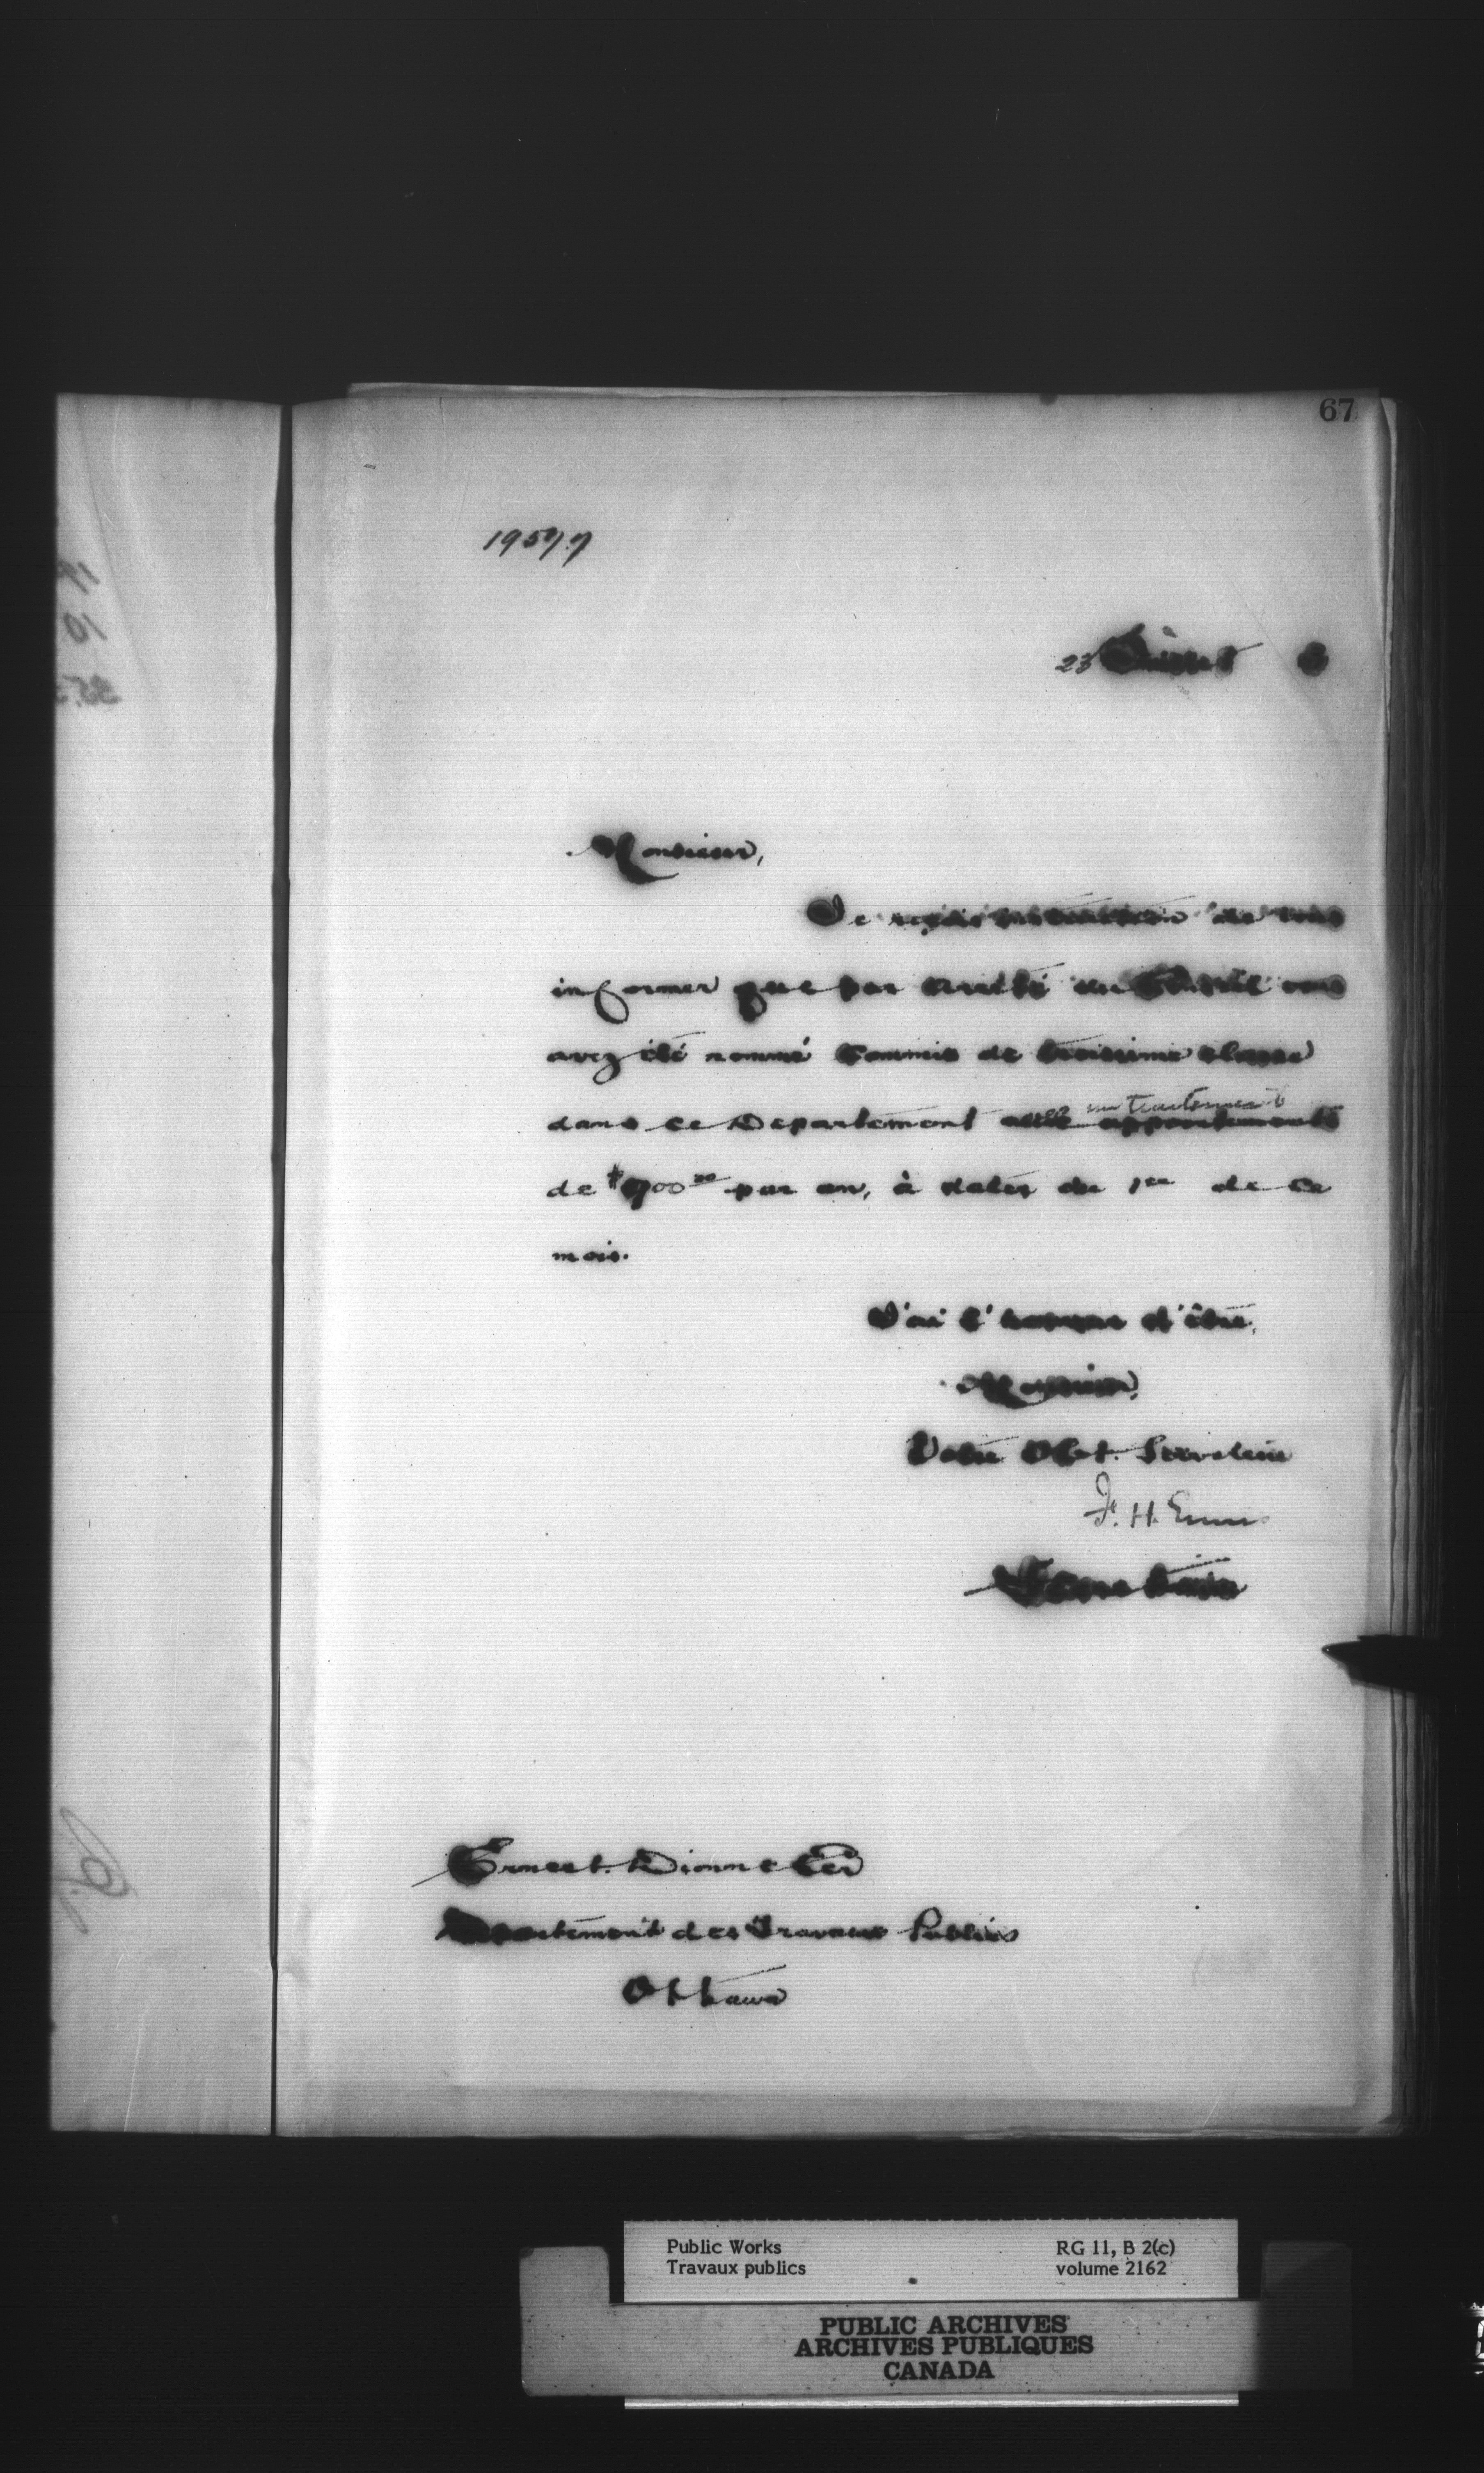 67
19577
23 Juillet
Monsieur,
Je reçois instruction de vous
informer que par arrêté du Conseil vous
avez été nommé Commis de troisieme classe
un traitement
dans ce Departement avec appointements
de $700 00 par an, à dater du 1er de ce
mois.
J'ai l'honneur d'être,
Monsieur,
Votre Obt. Serviteur
F. H. Ennis
Secrétaire
Ernest Dionne Ecr
Departement des Travaux Publics
Ottawa
Public Works
Travaux publics
RG 11, B 2(c)
volume 2162
PUBLIC ARCHIVES
ARCHIVES PUBLIQUES
CANADA